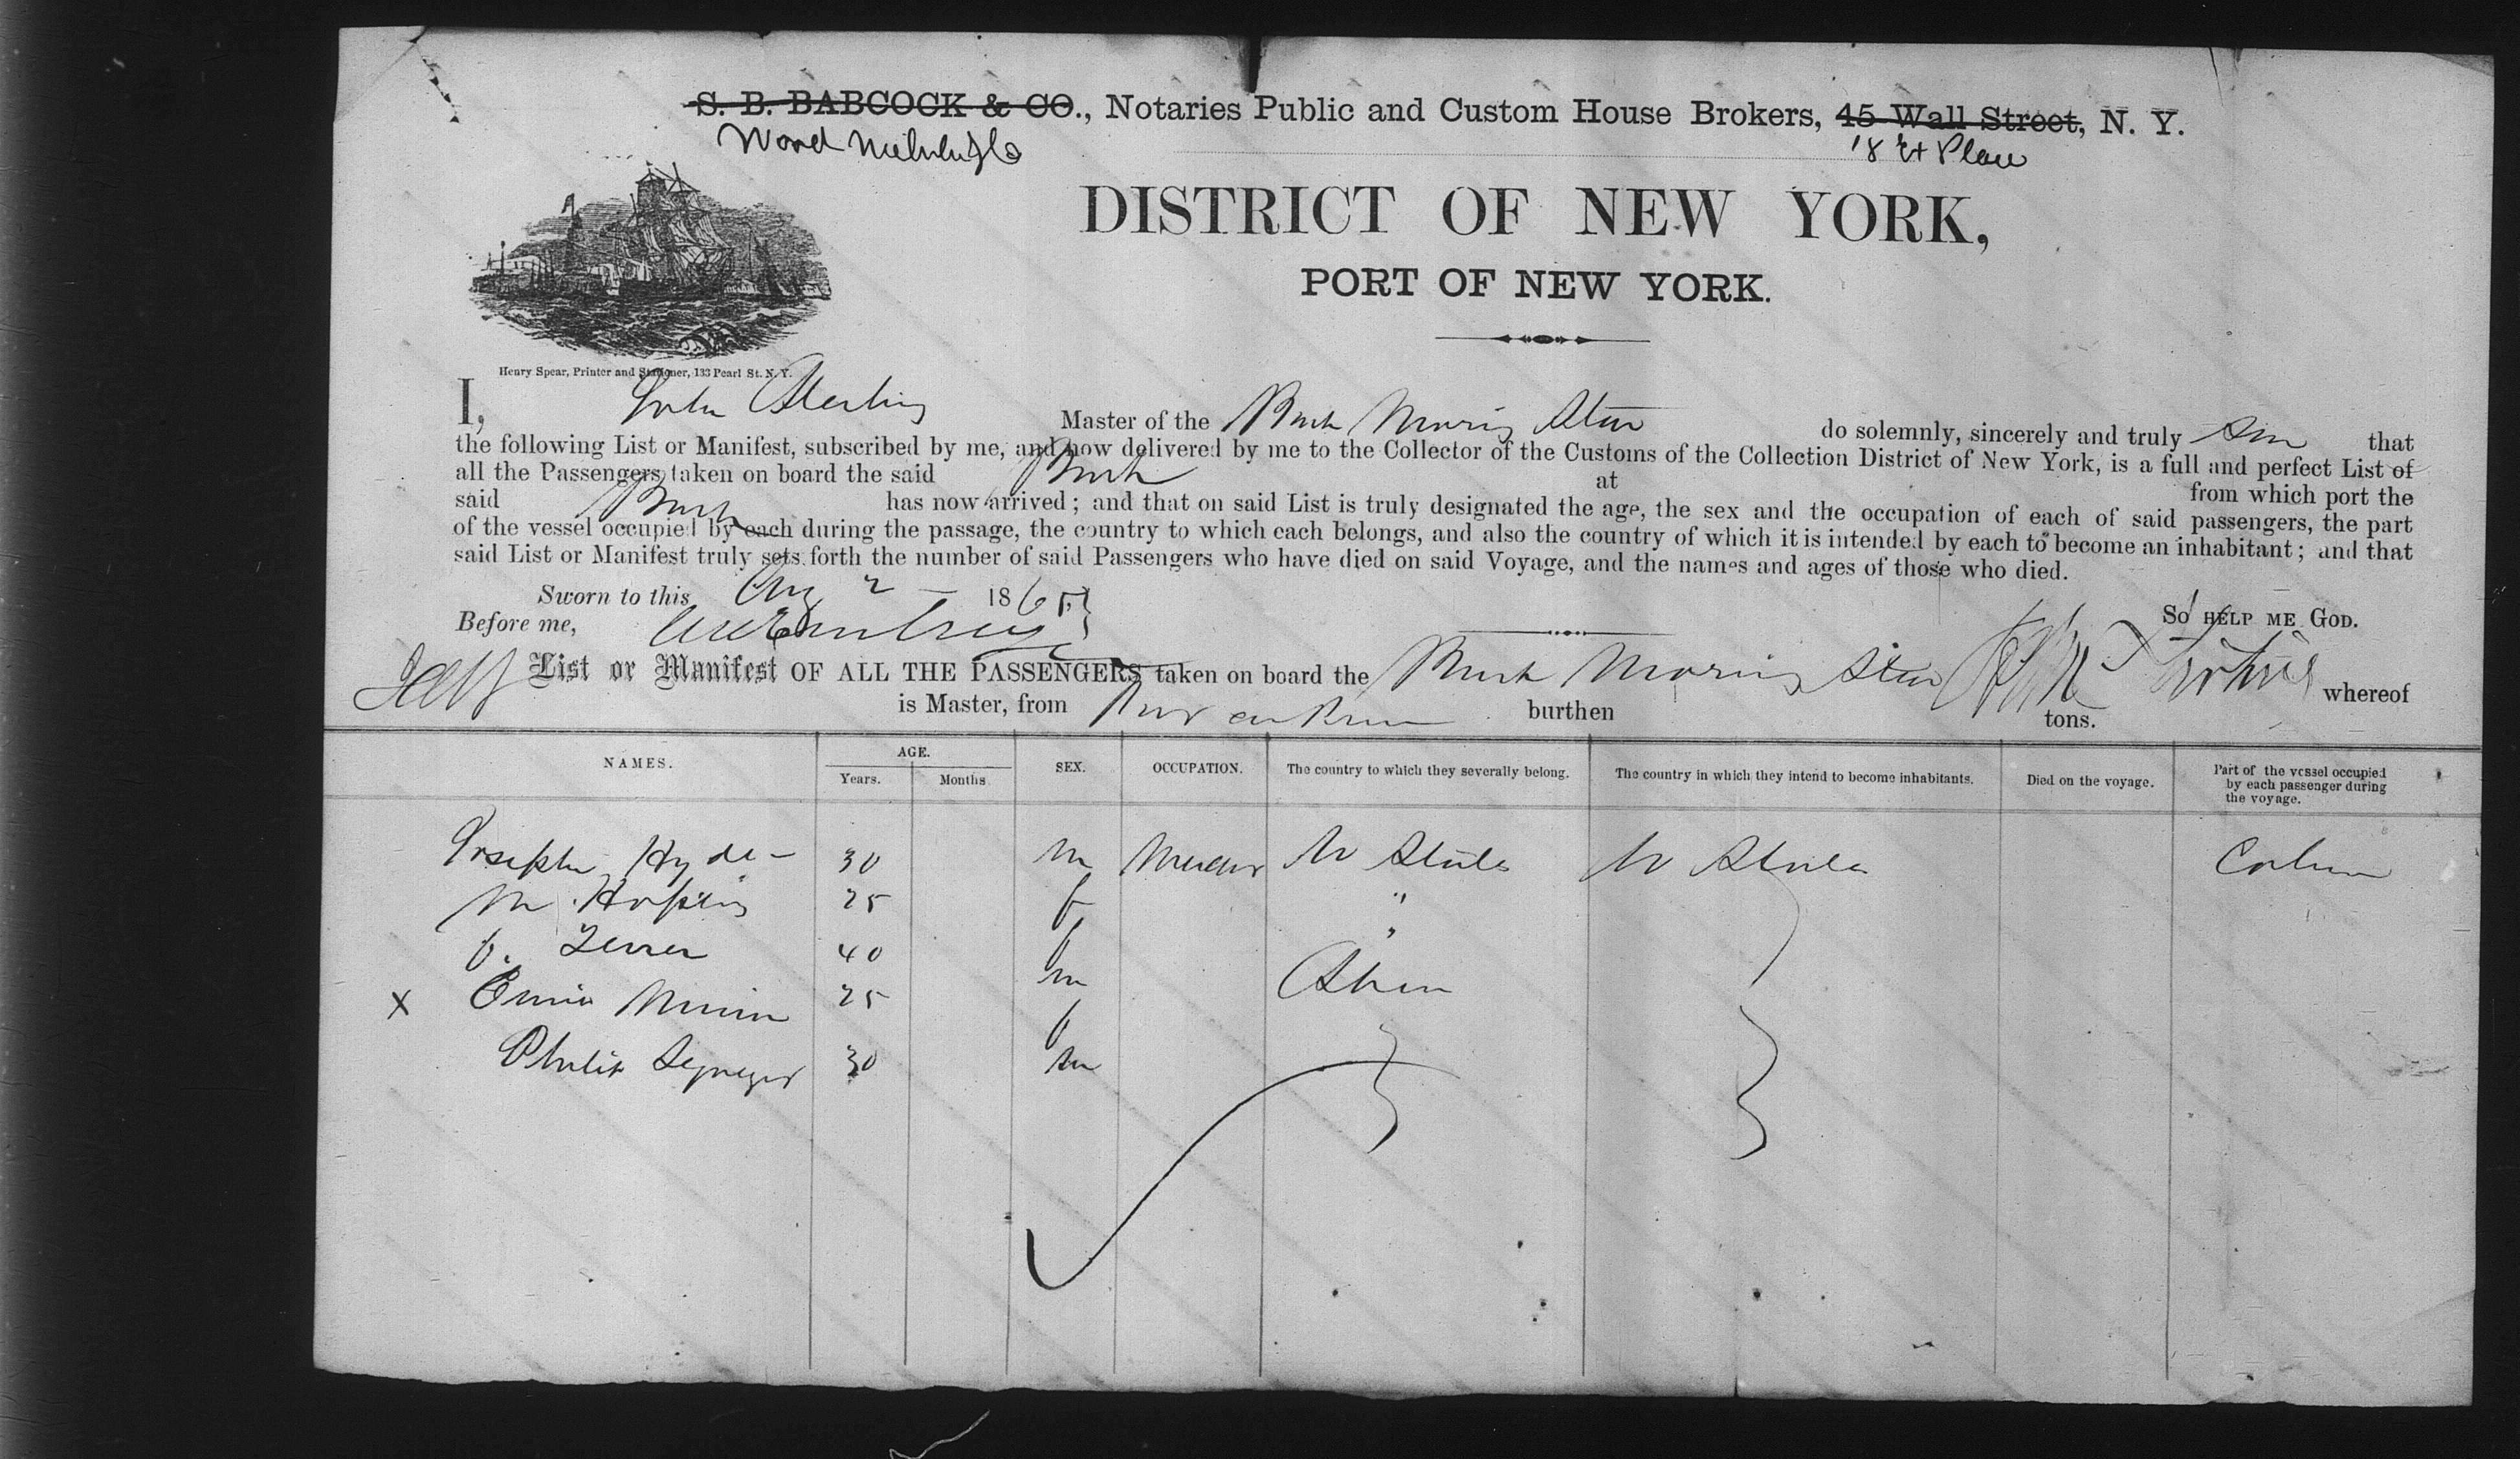 S. B. BABCOCK & CO., Notaries Public and Custom House Brokers, 45 Wall Street, N. Y.
18 Ex Place
DISTRICT OF NEW YORK,
PORT OF NEW YORK.
Henry Spear, Printer and Stationer, 133 Pearl St. N. Y.
I, Master of the Bark Morning Star do solemnly, sincerely and truly that
the following List or Manifest, subscribed by me, and now delivered by me to the Collector of the Customs of the Collection District of New York, is a full and perfect List of
all the Passengers taken on board the said Bark at from which port the
said Bark has now arrived; and that on said List is truly designated the age, the sex and the occupation of each of said passengers, the part
of the vessel occupied by each during the passage, the country to which each belongs, and also the country of which it is intended by each to become an inhabitant; and that
said List or Manifest truly sets forth the number of said Passengers who have died on said Voyage, and the names and ages of those who died.
Sworn to this Aug 2 1865
So HELP ME GOD.
Before me,
List or Manifest OF ALL THE PASSENGERS taken on board the Bark Morning Star whereof
is Master, from burthen tons.
NAMES. AGE. SEX. OCCUPATION. The country to which they severally belong. The country in which they intend to become inhabitants. Died on the voyage. Part of the vessel occupied by each passenger during the voyage.
Years. Months
Joseph Hyde 30 m U States U States Cabin
M Hopkins 25 f "
40 f "
X 25 m
f
Philip 30 m